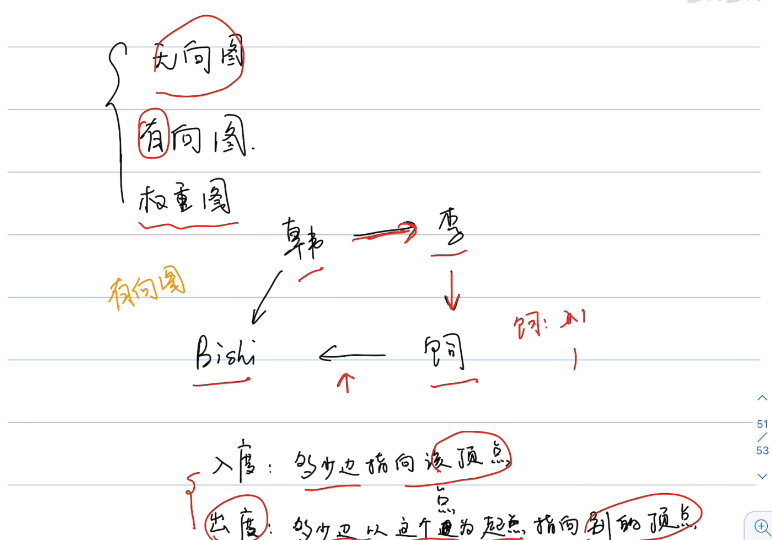 无向图
有向图.
权重图
韩 李
有向图
Bishi 饲 饲: 入1
1
51
/
53
入度: 多少边指向该顶点
点
出度: 多少边以这个为起点指向别的顶点